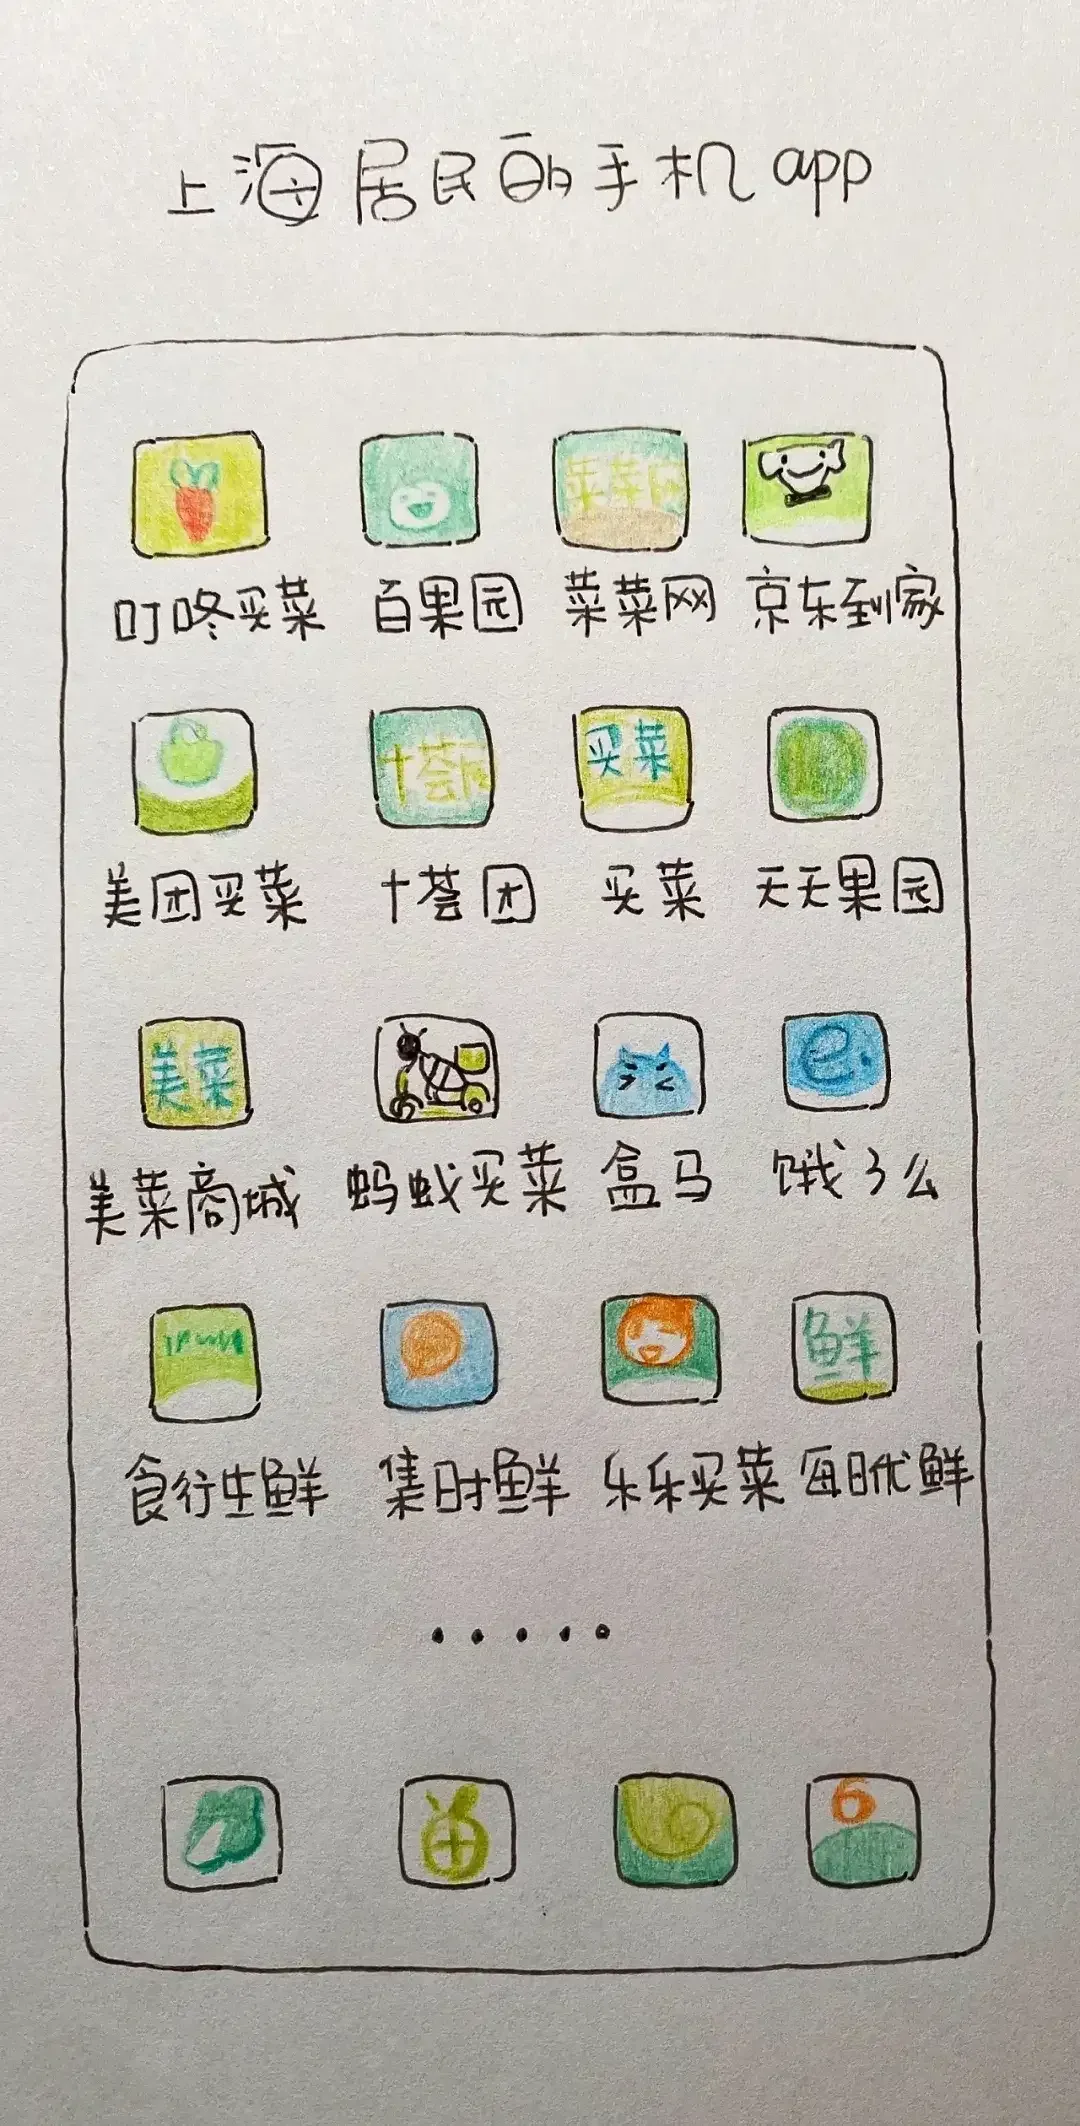 上海居民的手机app
菜菜网
叮咚买菜 百果园 菜菜网 京东到家
十荟团 买菜
美团买菜 十荟团 买菜 天天果园
美菜 e.
美菜商城 蚂蚁买菜 盒马 饿了么
鲜
食行生鲜 集时鲜 乐乐买菜 每日优鲜
.....
6